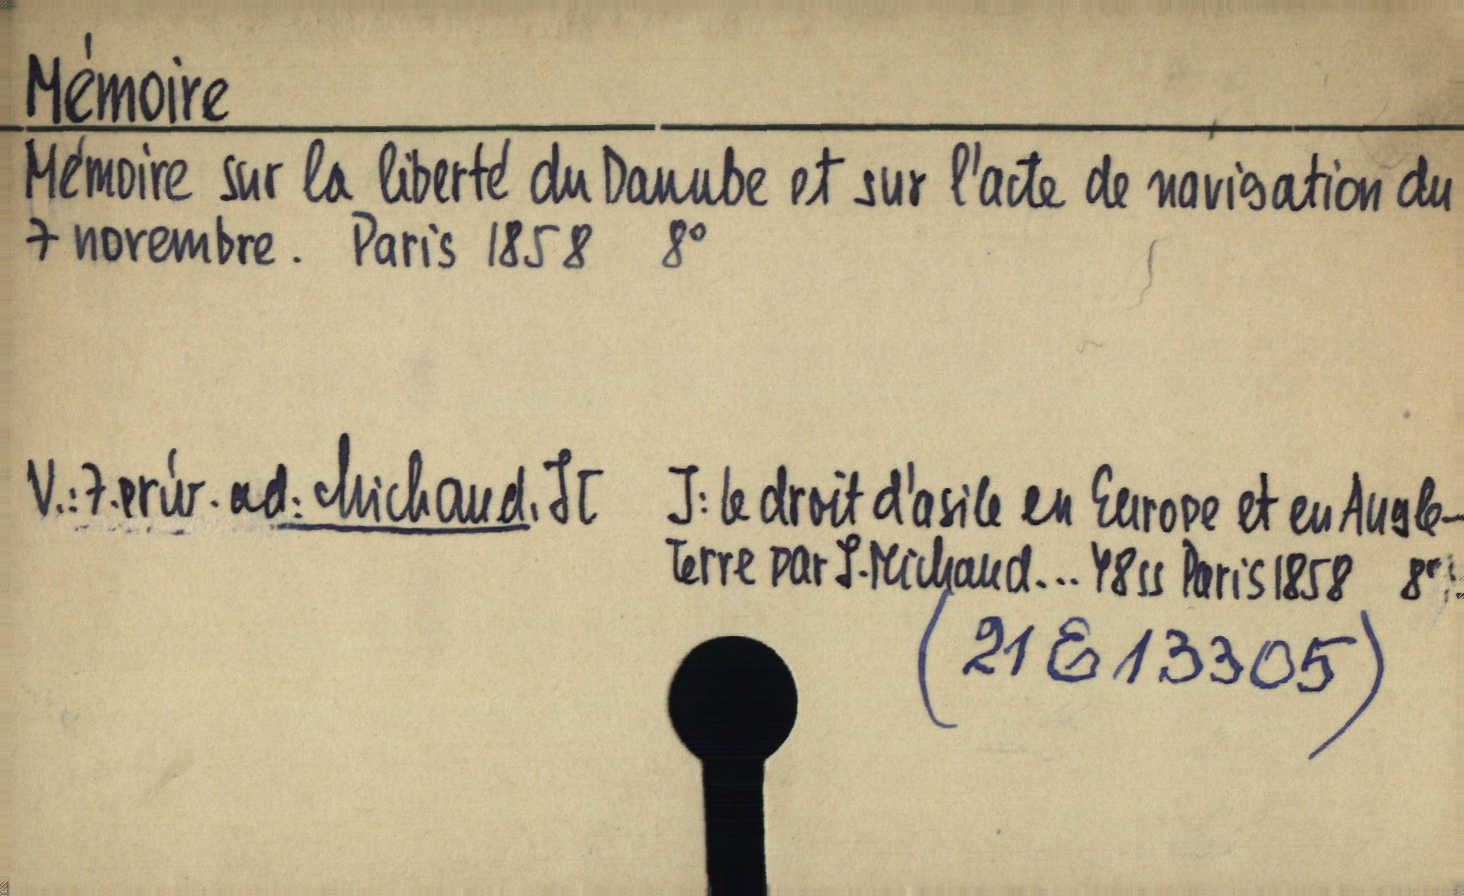 Mémoire
Mémoire sur la liberté du Danube et sur l'acte de navigation du
7 novembre. Paris 1858 8°
V.: 7. přív. ad: Michaud. J: le droit d'asile en Europe et en Angle-
terre par Michaud... Paris 1858 8°
(21 E 13305)